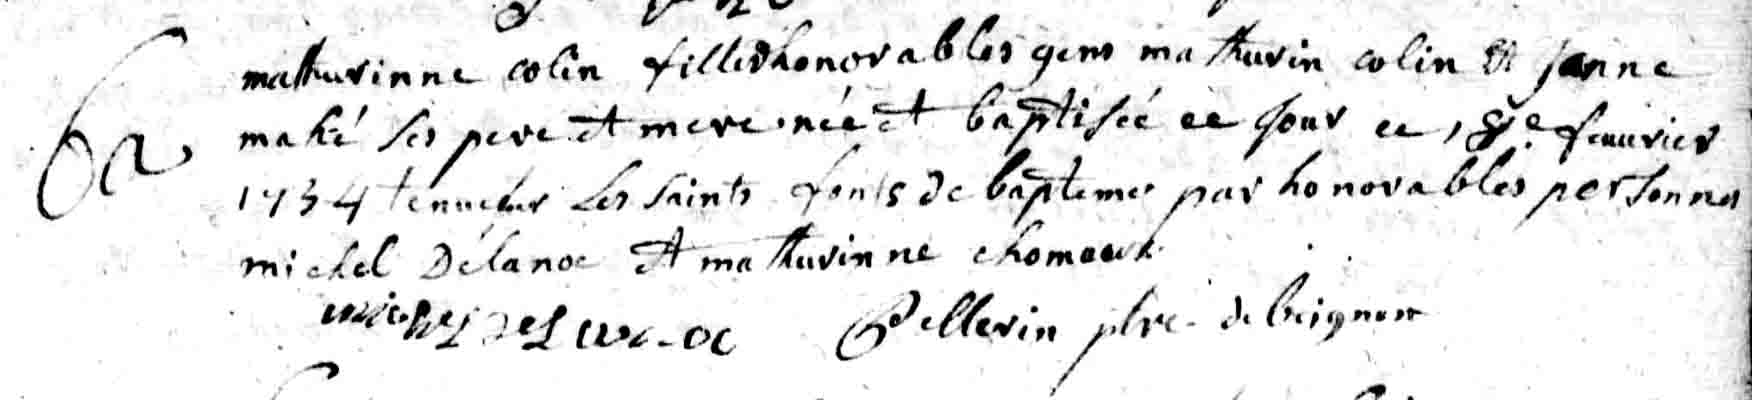 mathurinne colin fille dhonorables gens mathurin colin et janne
mahé ses pere et mere née et baptisée ce jour ce feuvrier
1734 tenue sur les saints fonts de baptemes par honorables personnes
michel Délanoe et mathurinne
michel de Lanoe Pellerin pbre de beignon